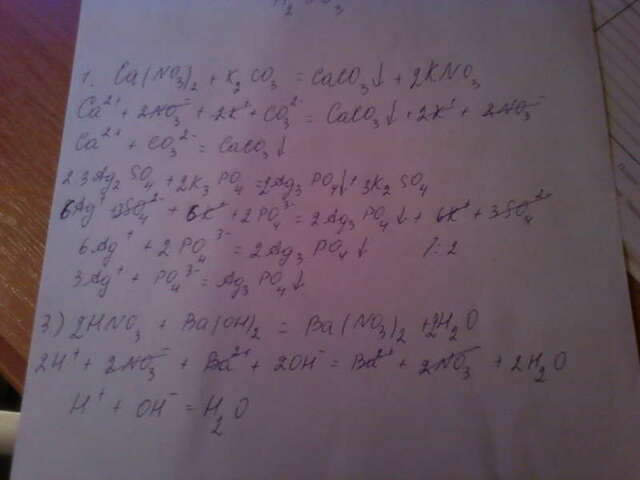 H₂ 3
1. Ca(NO₃)₂ + K₂CO₃ = CaCO₃↓ + 2KNO₃
Ca²⁺ + 2NO₃⁻ + 2K⁺ + CO₃²⁻ = CaCO₃↓ + 2K⁺ + 2NO₃⁻
Ca²⁺ + CO₃²⁻ = CaCO₃↓
2. 3Ag₂SO₄ + 2K₃PO₄ = 2Ag₃PO₄↓ + 3K₂SO₄
6Ag⁺ 3SO₄²⁻ + 6K⁺ + 2PO₄³⁻ = 2Ag₃PO₄↓ + 6K⁺ + 3SO₄²⁻
6Ag⁺ + 2PO₄³⁻ = 2Ag₃PO₄↓ /:2
3Ag⁺ + PO₄³⁻ = Ag₃PO₄↓
3.) 2HNO₃ + Ba(OH)₂ = Ba(NO₃)₂ + 2H₂O
2H⁺ + 2NO₃⁻ + Ba²⁺ + 2OH⁻ = Ba²⁺ + 2NO₃⁻ + 2H₂O
H⁺ + OH⁻ = H₂O